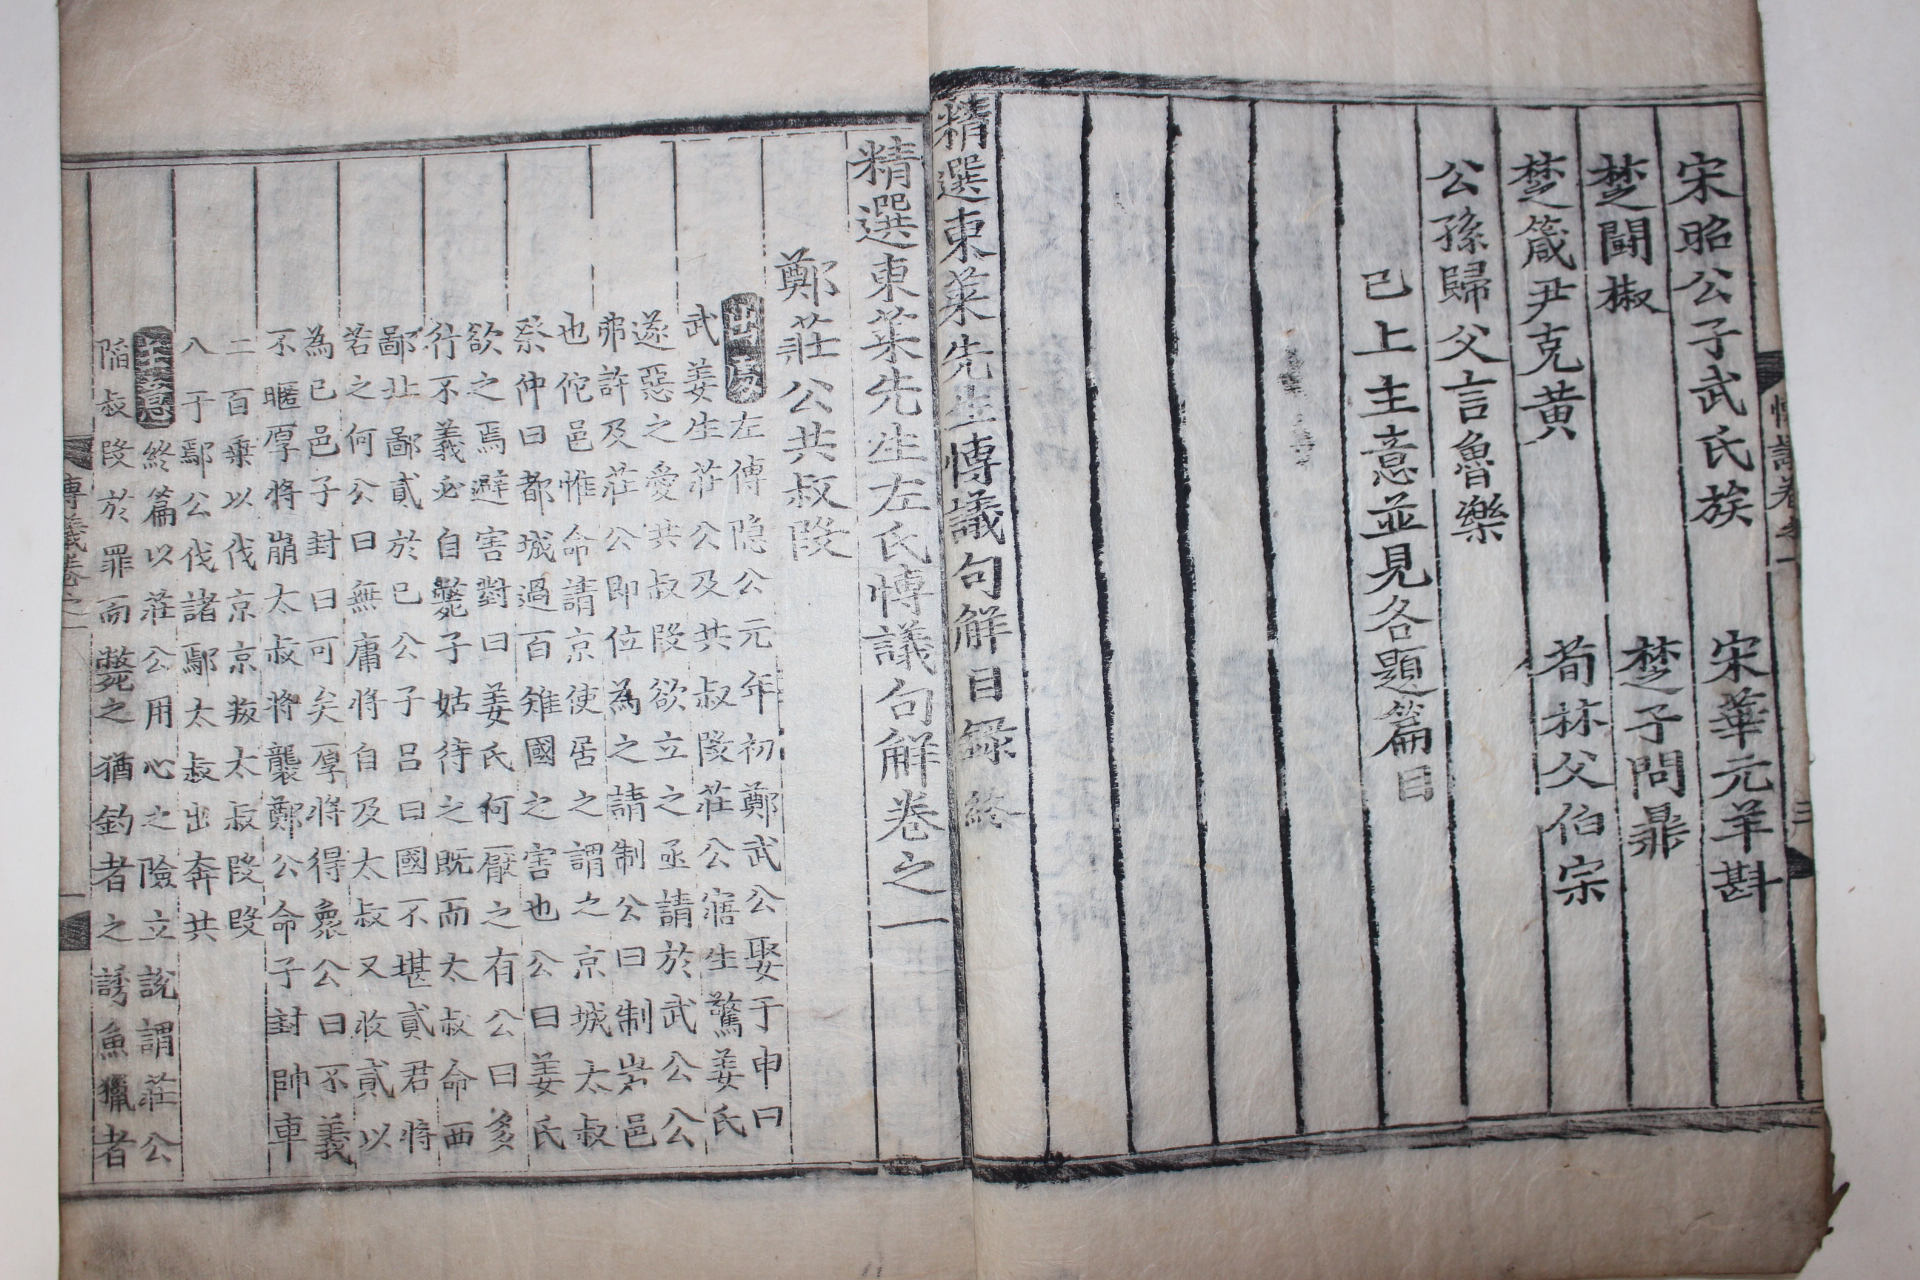 宋昭公子武氏族 宋華元羊斟
楚鬪椒 楚子問鼎
楚箴尹克黃 荀林父伯宗
公孫歸父言魯樂
已上主意並見各題篇目
精選東萊先生博議句解目錄終
精選東萊先生左氏博議句解卷之一
鄭莊公共叔段
出處
左傳隐公元年初鄭武公娶于申曰
武姜生莊公及共叔段莊公寤生驚姜氏
遂惡之愛共叔段欲立之亟請於武公公
弗許及莊公即位為之請制公曰制岩邑
也佗邑惟命請京使居之謂之京城太叔
祭仲曰都城過百雉國之害也公曰姜氏
欲之焉避害對曰姜氏何厭之有公曰多
行不義必自斃子姑待之既而太叔命西
鄙北鄙貳於已公子呂曰國不堪貳君將
若之何公曰無庸將自及太叔又收貳以
為已邑子封曰可矣厚將得衆公曰不義
不暱厚將崩太叔將襲鄭公命子封帥車
二百乘以伐京京叛太叔段段
入于鄢公伐諸鄢太叔出奔共
主意
終篇以莊公用心之險立說謂莊公
陷叔段於罪而斃之猶釣者之誘魚獵者
博議卷之一